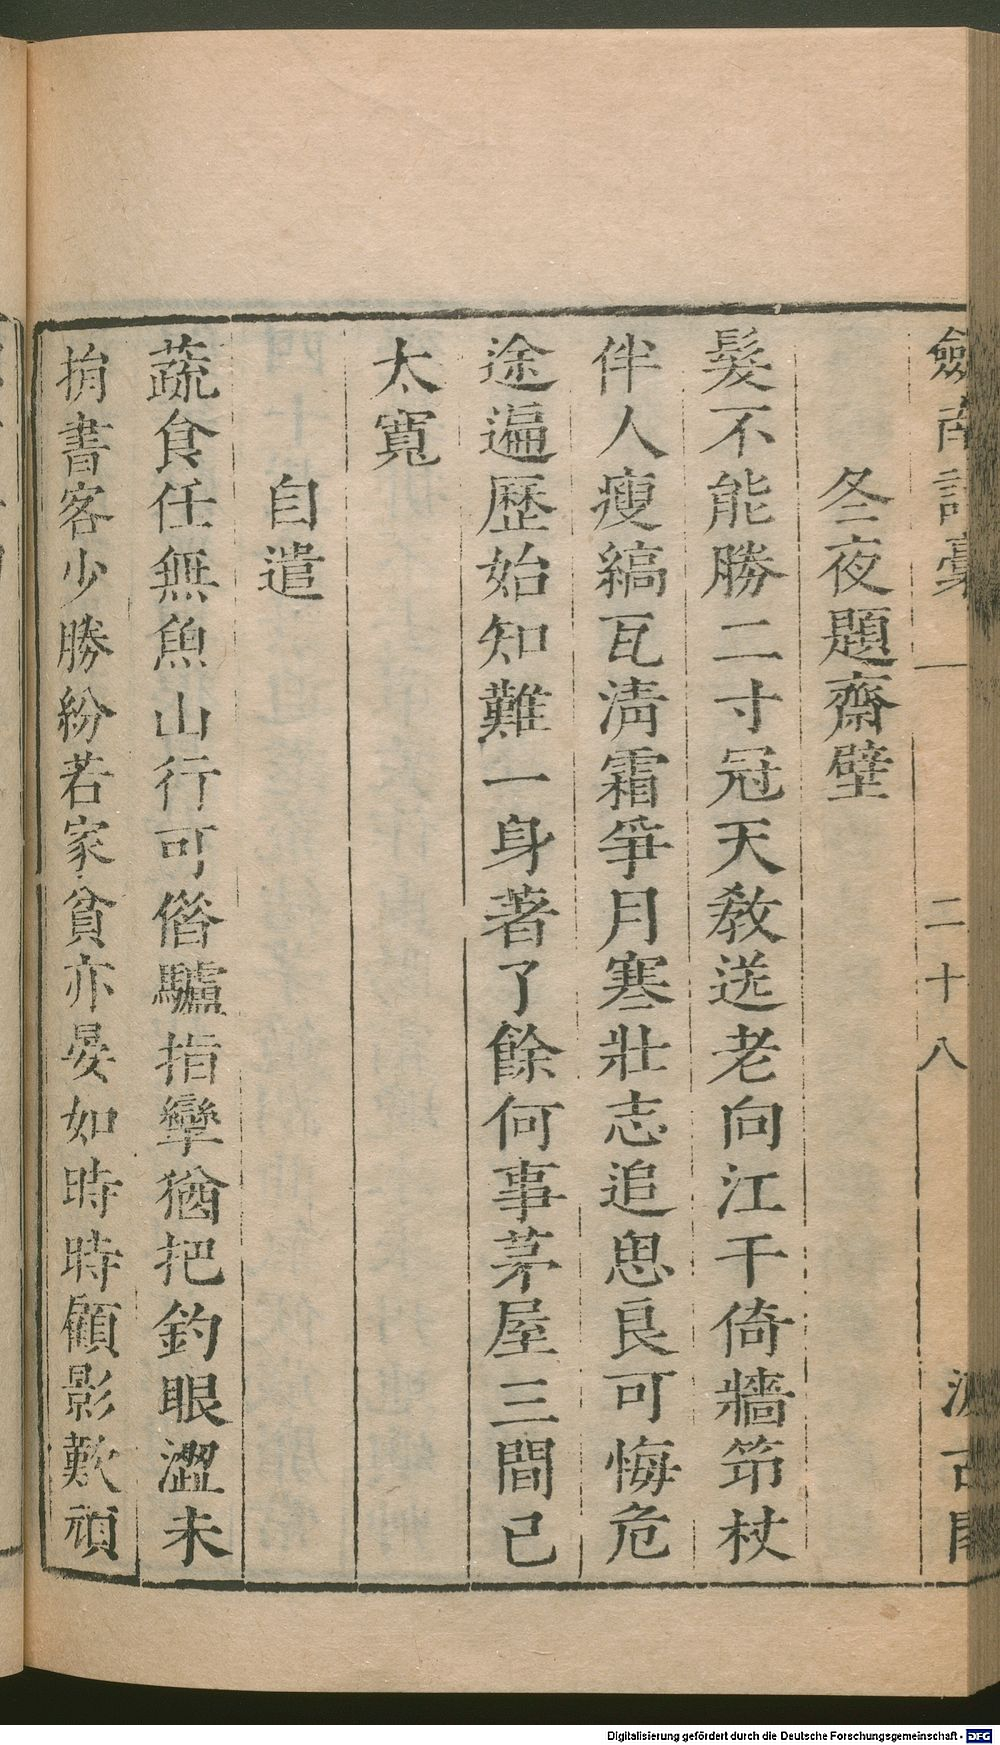 劍南詩藁
二十八
汲古閣
冬夜題齋壁
髮不能勝二寸冠天敎送老向江干倚牆筇杖
伴人瘦縞瓦淸霜爭月寒壯志追思良可悔危
途遍歷始知難一身著了餘何事茅屋三間已
太寬
自遣
蔬食任無魚山行可僭驢指攣猶把釣眼澀未
捐書客少勝紛若家貧亦晏如時時顧影歎頑
Digitalisierung gefördert durch die Deutsche Forschungsgemeinschaft - DFG